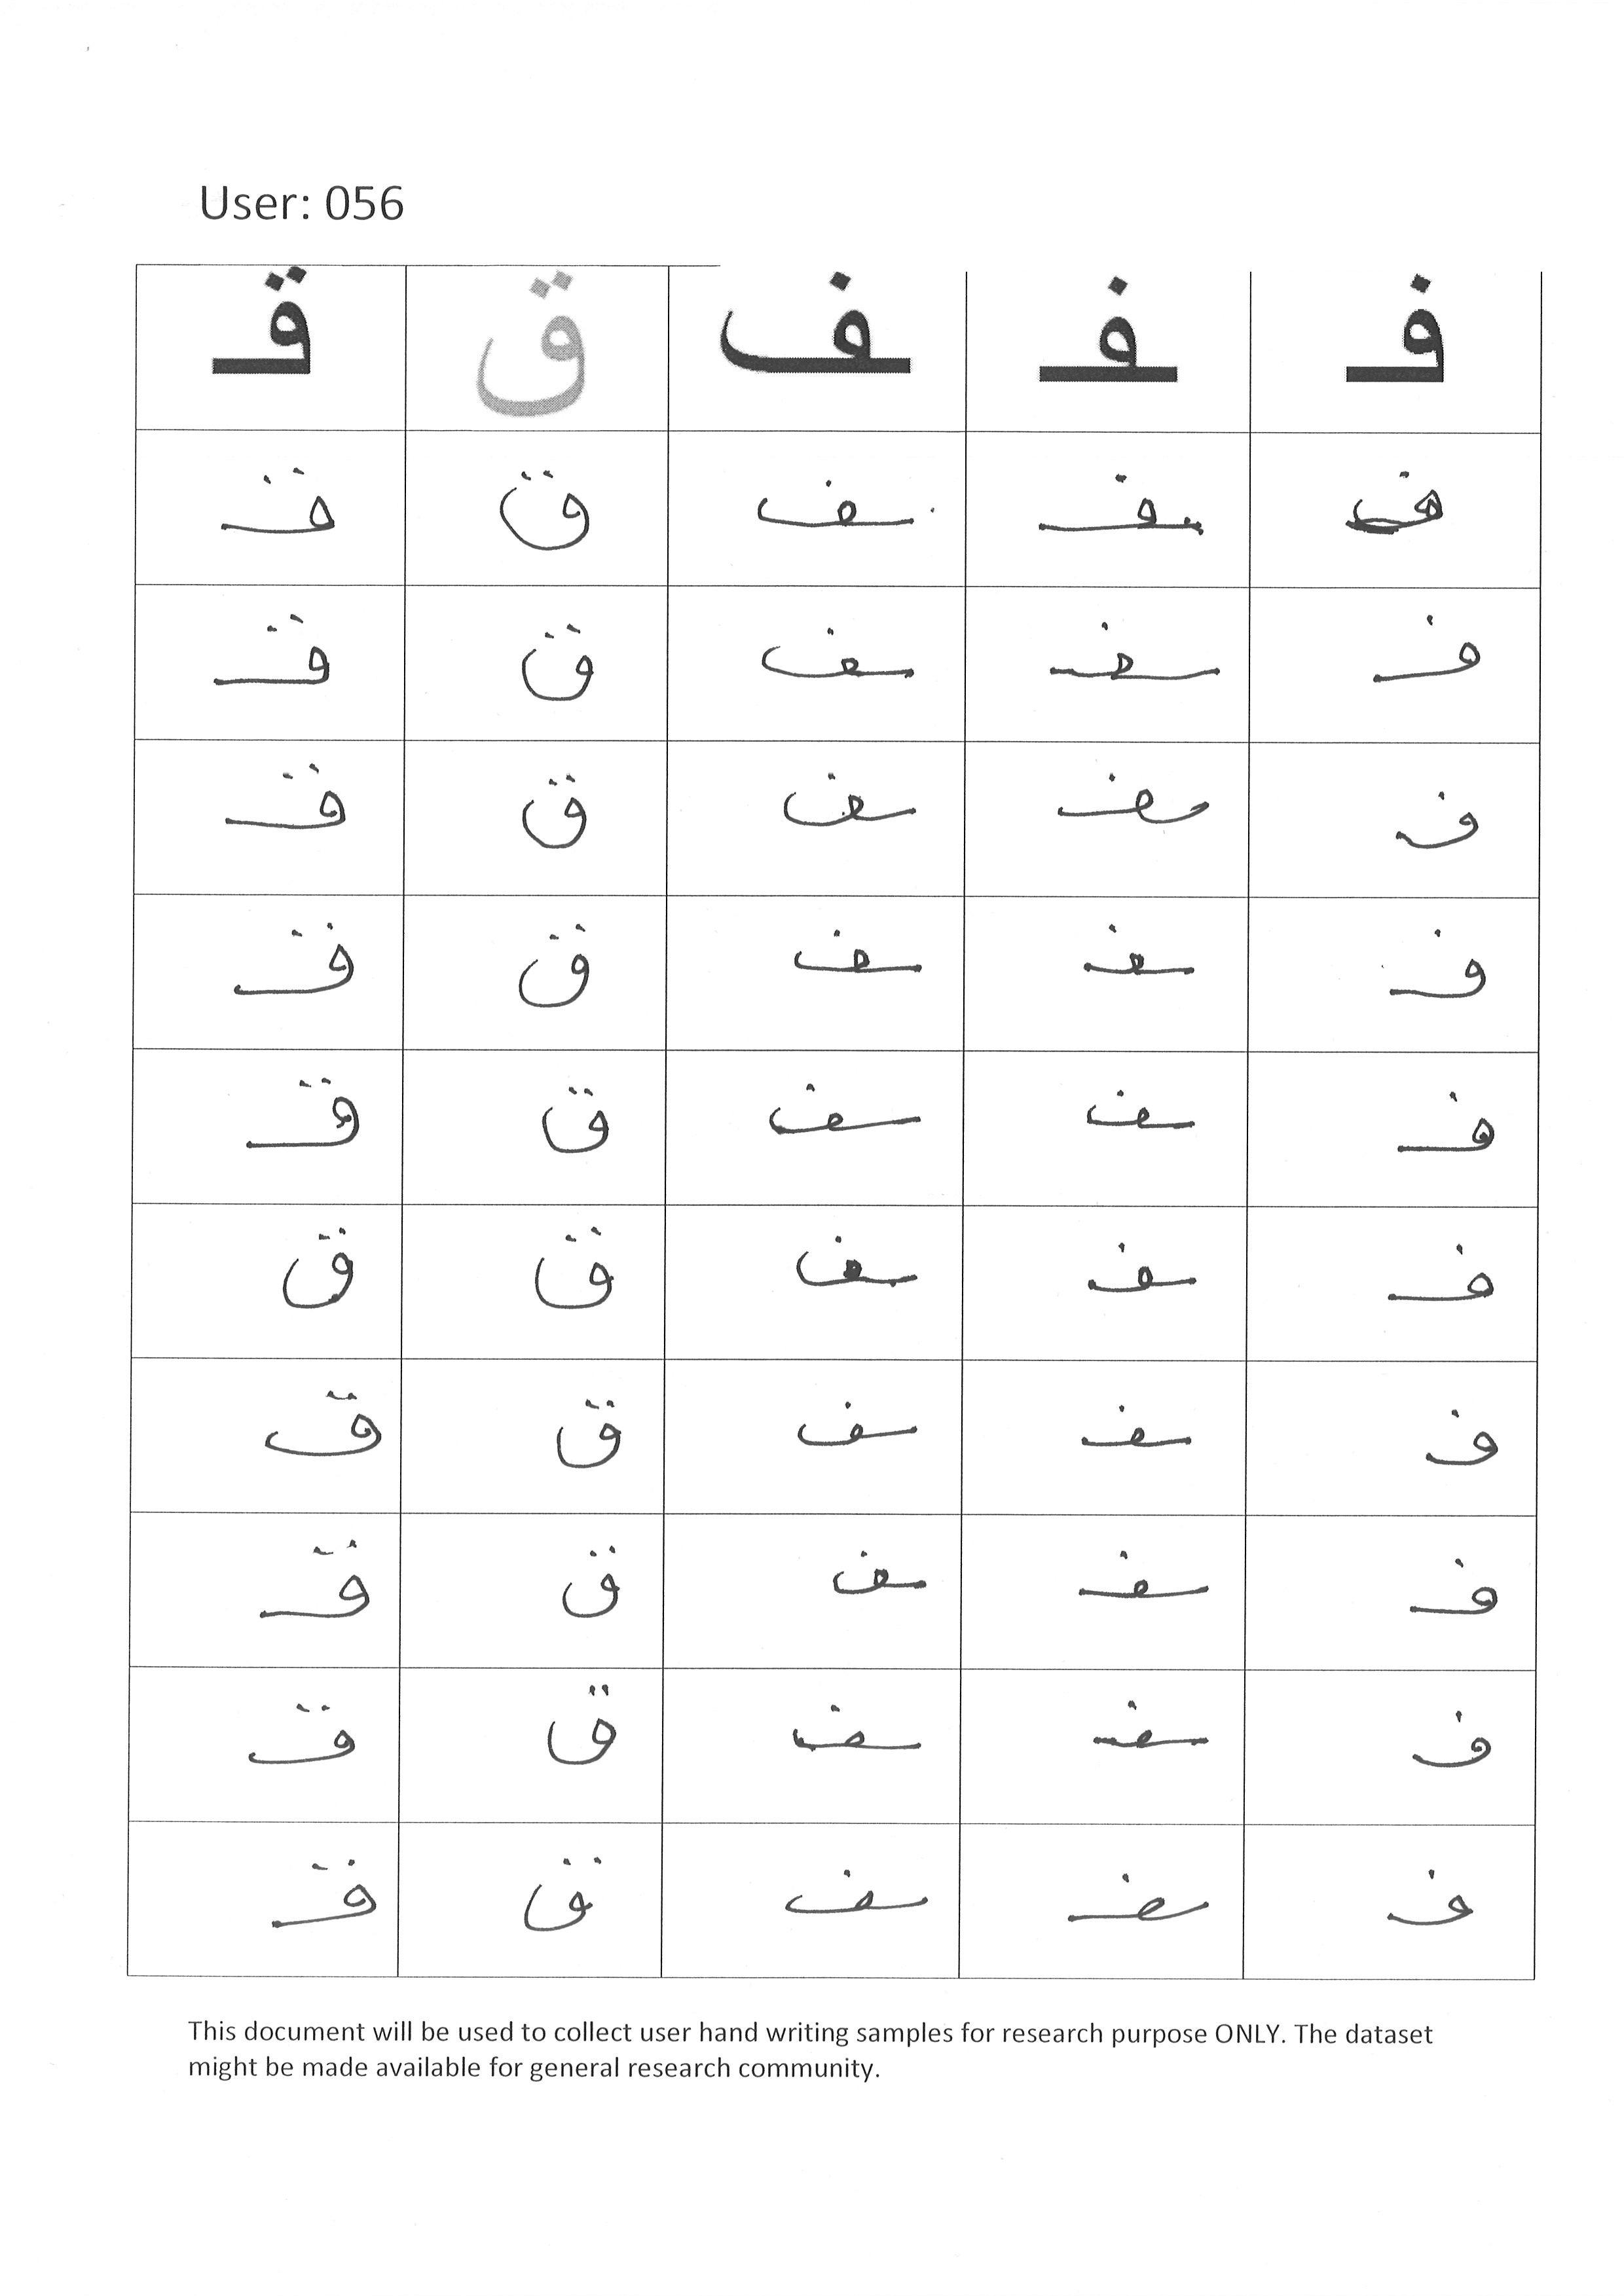 User: 056
فـ ـفـ ـف ق قـ
فـ ـفـ ـف ق قـ
فـ ـفـ ـف ق قـ
فـ ـفـ ـف ق قـ
فـ ـفـ ـف ق قـ
فـ ـفـ ـف ق قـ
فـ ـفـ ـف ق ق
فـ ـفـ ـف ق قـ
فـ ـفـ ـف ق قـ
فـ ـفـ ـف ق قـ
فـ ـفـ ـف ق قـ
This document will be used to collect user hand writing samples for research purpose ONLY. The dataset
might be made available for general research community.